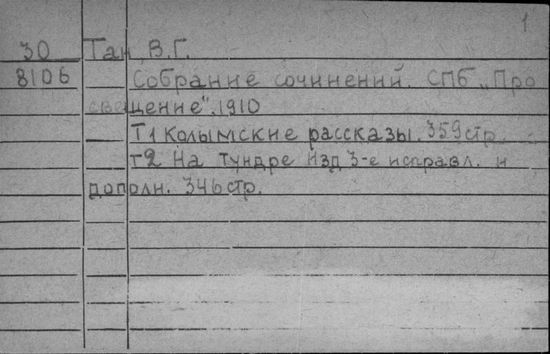 1
30 Тан В.Г.
8106 Собрание сочинений. СПб „Про
свещение". 1910
Т1 Колымские рассказы. 359стр.
Т2 На тундре Изд 3-е исправл. и
дополн. 346стр.